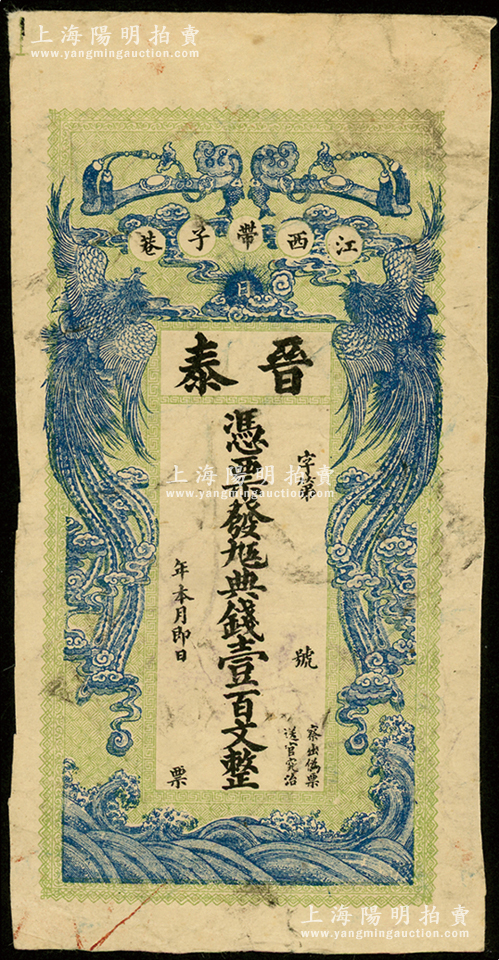 上海陽明拍賣
www.yangmingauction.com
上海陽明拍賣
www.yangmingauction.com
江西帶子巷
日
晉泰
字第 號
察出偽票
送官究治
憑票 發 典錢壹百文整
年本月即日 票
上海陽明拍賣
www.yangmingauction.com
上海陽明拍賣
www.yangmingauction.com